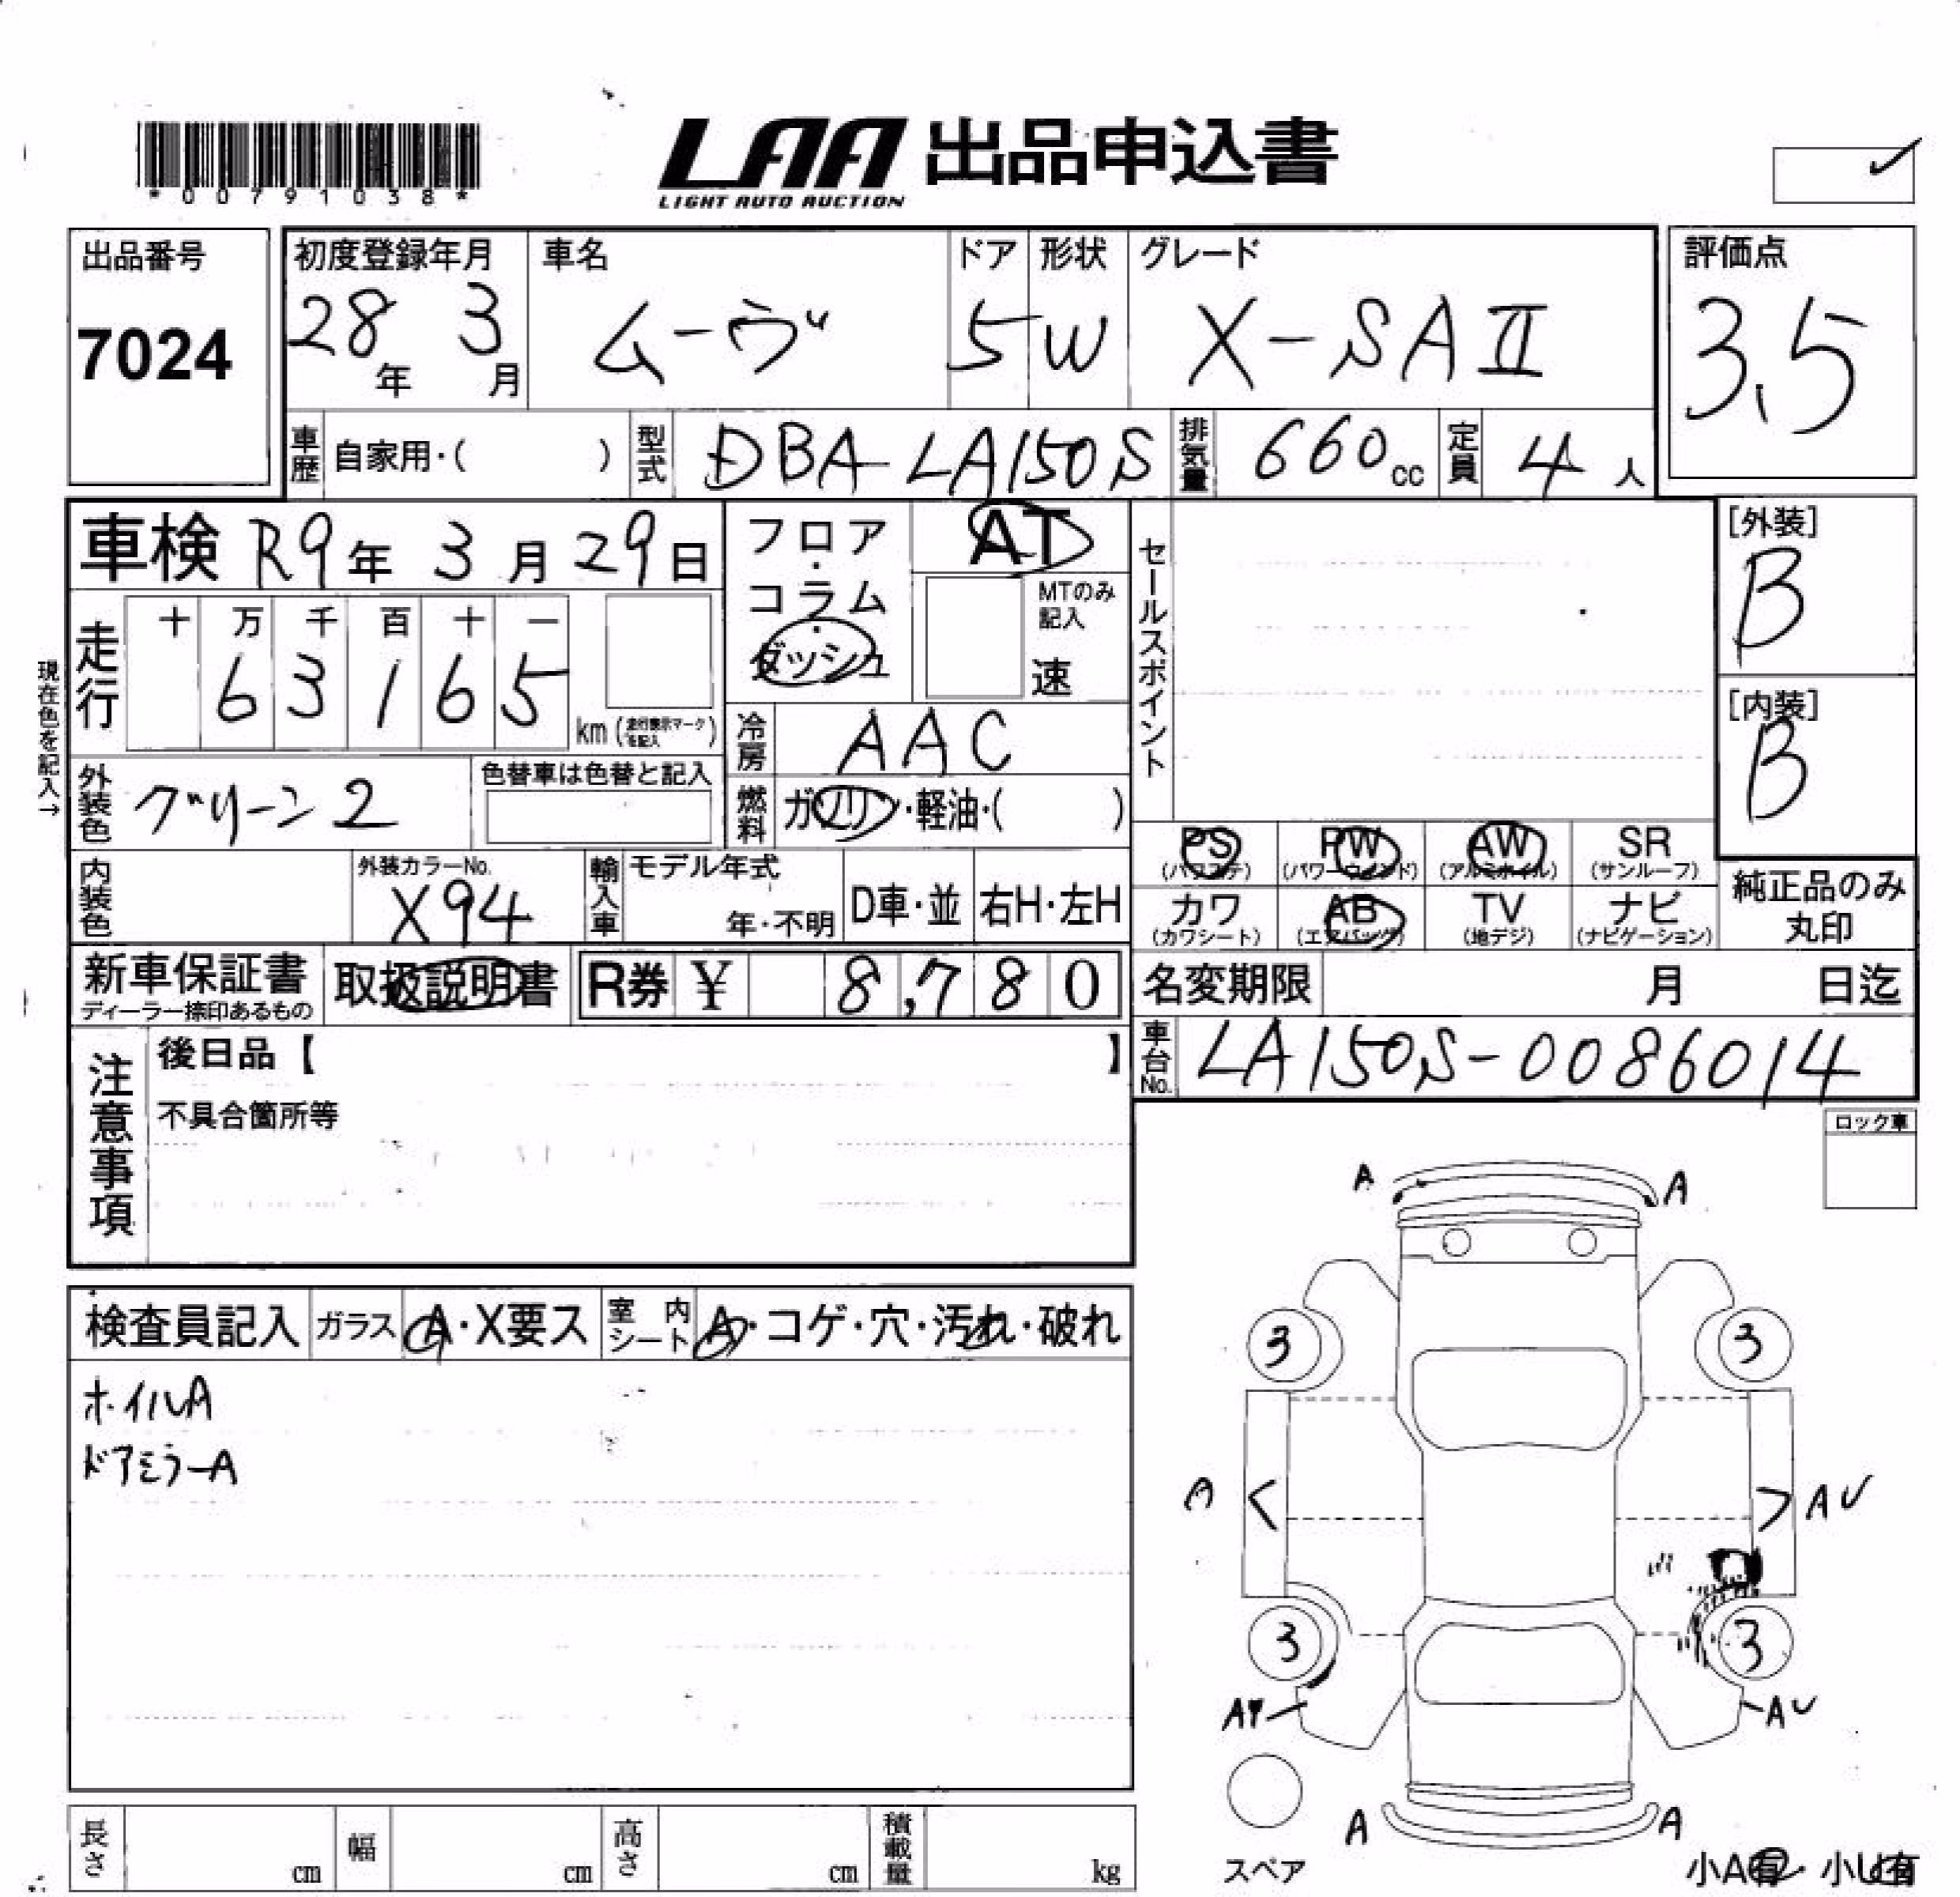 *00791038*
LAA 出品申込書
LIGHT AUTO AUCTION
出品番号
7024
初度登録年月
28年 3月
車名
ムーヴ
ドア
5
形状
W
グレード
X-SAⅡ
評価点
3.5
車歴 自家用・( )
型式 DBA-LA150S
排気量 660cc
定員 4人
車検 R9年 3月 29日
走行
十 万 千 百 十 一
6 3 1 6 5
km (走行表示マークを記入)
現在色を記入→
外装色 グリーン2
色替車は色替と記入
内装色
外装カラーNo.
X94
輸入車
モデル年式
年・不明
D車・並
右H・左H
フロア・コラム・ダッシュ
AT
MTのみ記入
速
冷房 AAC
燃料 ガソリン・軽油・( )
セールスポイント
[外装]
B
[内装]
B
PS (パワステ)
PW (パワーウィンド)
AW (アルミホイル)
SR (サンルーフ)
カワ (カワシート)
AB (エアバッグ)
TV (地デジ)
ナビ (ナビゲーション)
純正品のみ丸印
新車保証書
ディーラー捺印あるもの
取扱説明書
R券 ¥ 8,780
名変期限 月 日迄
車台No. LA150S-0086014
注意事項
後日品【 】
不具合箇所等
ロック車
検査員記入
ガラス A・X要ス
室内シート A・コゲ・穴・汚れ・破れ
ホイルA
ドアミラーA
A A
3 3
A AU
3 3
AU
A A
スペア
小A有・小U有
長さ cm
幅 cm
高さ cm
積載量 kg